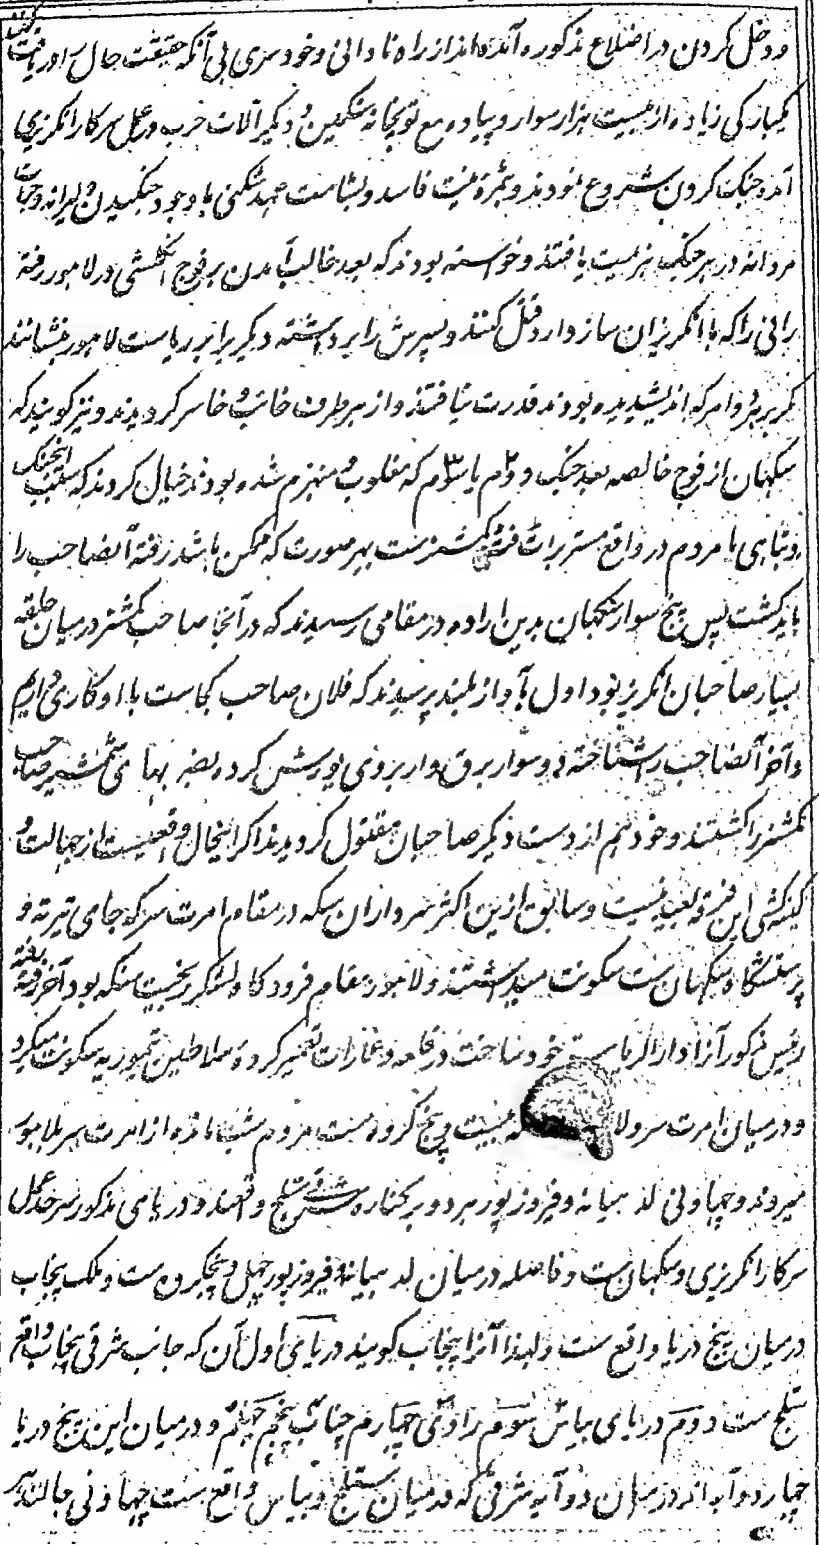 و دخل کردن در اضلاع مذکوره آمده‌اند از راه نادانی و خودسری بی آنکه حقیقت حال را دریافت کنند
یکبارگی زیاده از بیست هزار سوار و پیاده مع توپخانه سنگین و دیگر آلات حرب در عمل سرکار انگریزی
آمده جنگ کردن شروع نمودند و بثمره نیت فاسد و بشامت عهد شکنی باوجود جنگیدن دلیرانه و حملات
مردانه در هر جنگ هزیمت یافتند و خواسته بودند که بعد غالب آمدن بر فوج انگلشی در لاهور رفته
رانی را که با انگریزان سازوارد قتل کنند و پسرش را برداشته دیگری را بر ریاست لاهور بنشانند
مگر بر هر دو امر که اندیشیده بودند قدرت نیافتند و از هر طرف خائب و خاسر گردیدند و نیز گویند که
سکهان از فوج خالصه بعد جنگ دوم یا سوم که مغلوب و منهزم شده بودند خیال کردند که سبب اینجنگ
و تباهی ما مردم در واقع مستر براٹ فٹ کمشنرست بهر صورت که ممکن باشد رفته آنصاحب را
باید کشت پس پنج سوار سکهان بدین اراده در مقامی رسیدند که در آنجا صاحب کمشنر درمیان حلقه
بسیار صاحبان انگریز بود اول بآواز بلند پرسیدند که فلان صاحب کجاست با او کاری داریم
و آخر آنصاحب را شناخته دو سوار برق وار بروی یورش کرده بضربهای شمشیر صاحب
کمشنر را کشتند و خود هم از دست دیگر صاحبان مقتول گردیدند اگر اینحال واقعیست از جهالت و
کینه کشی این فرقه بعید نیست و سابق ازین اکثر سرداران سکه در مقام امرت سر که جای تیرته و
پرستشگاه سکهان ست سکونت میداشتند و لاهور مقام فرودگاه لشکر رنجیت سنگه بود آخر رفته رفته
رئیس مذکور آنرا دار الریاست خود ساخت در قلعه و عمارات تعمیر کرده سلاطین تیموریه سکونت میکرد
و درمیان امرت سر و لا بیست و پنج کروه ست مردم شب مانده از امرت سر بلاهور
میروند و چهاونی لدهیانه و فیروزپور هر دو بر کناره شرقی ستلج واقعند و دریای مذکور سرحد عمل
سرکار انگریزی و سکهان ست و فاصله درمیان لدهیانه و فیروزپور چهل و پنجکروه ست و ملک پنجاب
درمیان پنج دریا واقع ست و لهذا آنرا پنجاب گویند دریای اول آن که جانب شرقی پنجاب واقع
ستلج ست دوم دریای بیاس سوم راوی چهارم چناب پنجم جهلم و درمیان این پنج دریا
چهار دوآبه اند درمیان دوآبه شرقی که درمیان ستلج و بیاس واقع ست چهاونی جالندهر